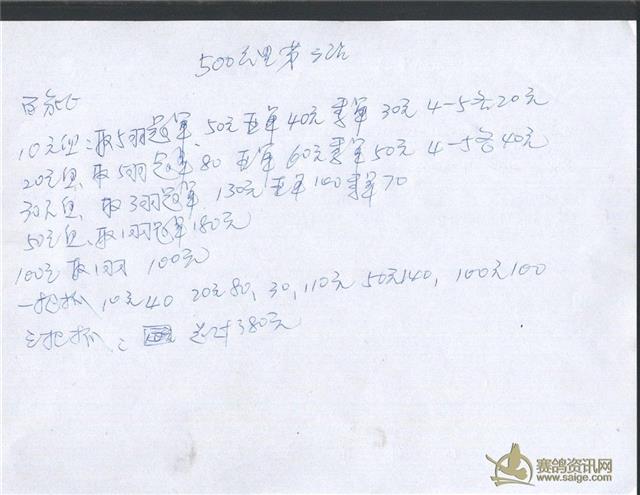 500公里第二站
百分比
10元组：取5羽冠军、50元亚军40元季军30元4-5名20元
20元组、取5羽冠军80亚军60元季军50元4-5名40元
30元组、取3羽冠军130元亚军100季军70
50元组、取1羽冠军180元
100元取1羽100元
一把抓10元40 20元80，30，110元50元140，100元100
三把抓： 总计380元
赛鸽资讯网
www.saige.com